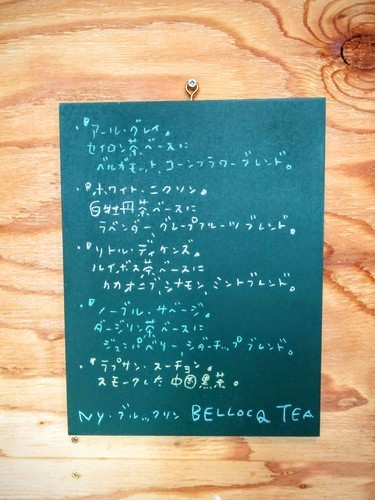 ・『アール・グレイ』
セイロン茶ベースに
ベルガモット、コーンフラワーブレンド。
・『ホワイト・ニクソン』
白牡丹茶ベースに
ラベンダー、グレープフルーツブレンド。
・『リトル・ディケンズ』
ルイボス茶ベースに
カカオニブ、シナモン、ミントブレンド。
・『ノーブル・サベージ』
ダージリン茶ベースに
ジュニパベリー、シダーチップブレンド。
・『ラプサン・スーチョン』
スモークした中国黒茶。
NY・ブルックリン BELLOCQ TEA